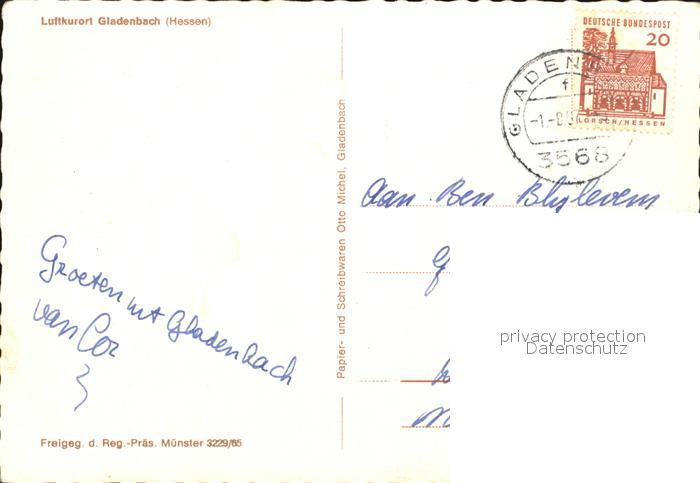 Luftkurort Gladenbach (Hessen)
DEUTSCHE BUNDESPOST
20
LORSCH/HESSEN
GLADEN
f
3568
Papier- und Schreibwaren Otto Michel, Gladenbach
Aan Ben Blylevens
Groeten uit Gladenbach
van Cor
privacy protection
Datenschutz
Freigeg. d. Reg.-Präs. Münster 3229/65